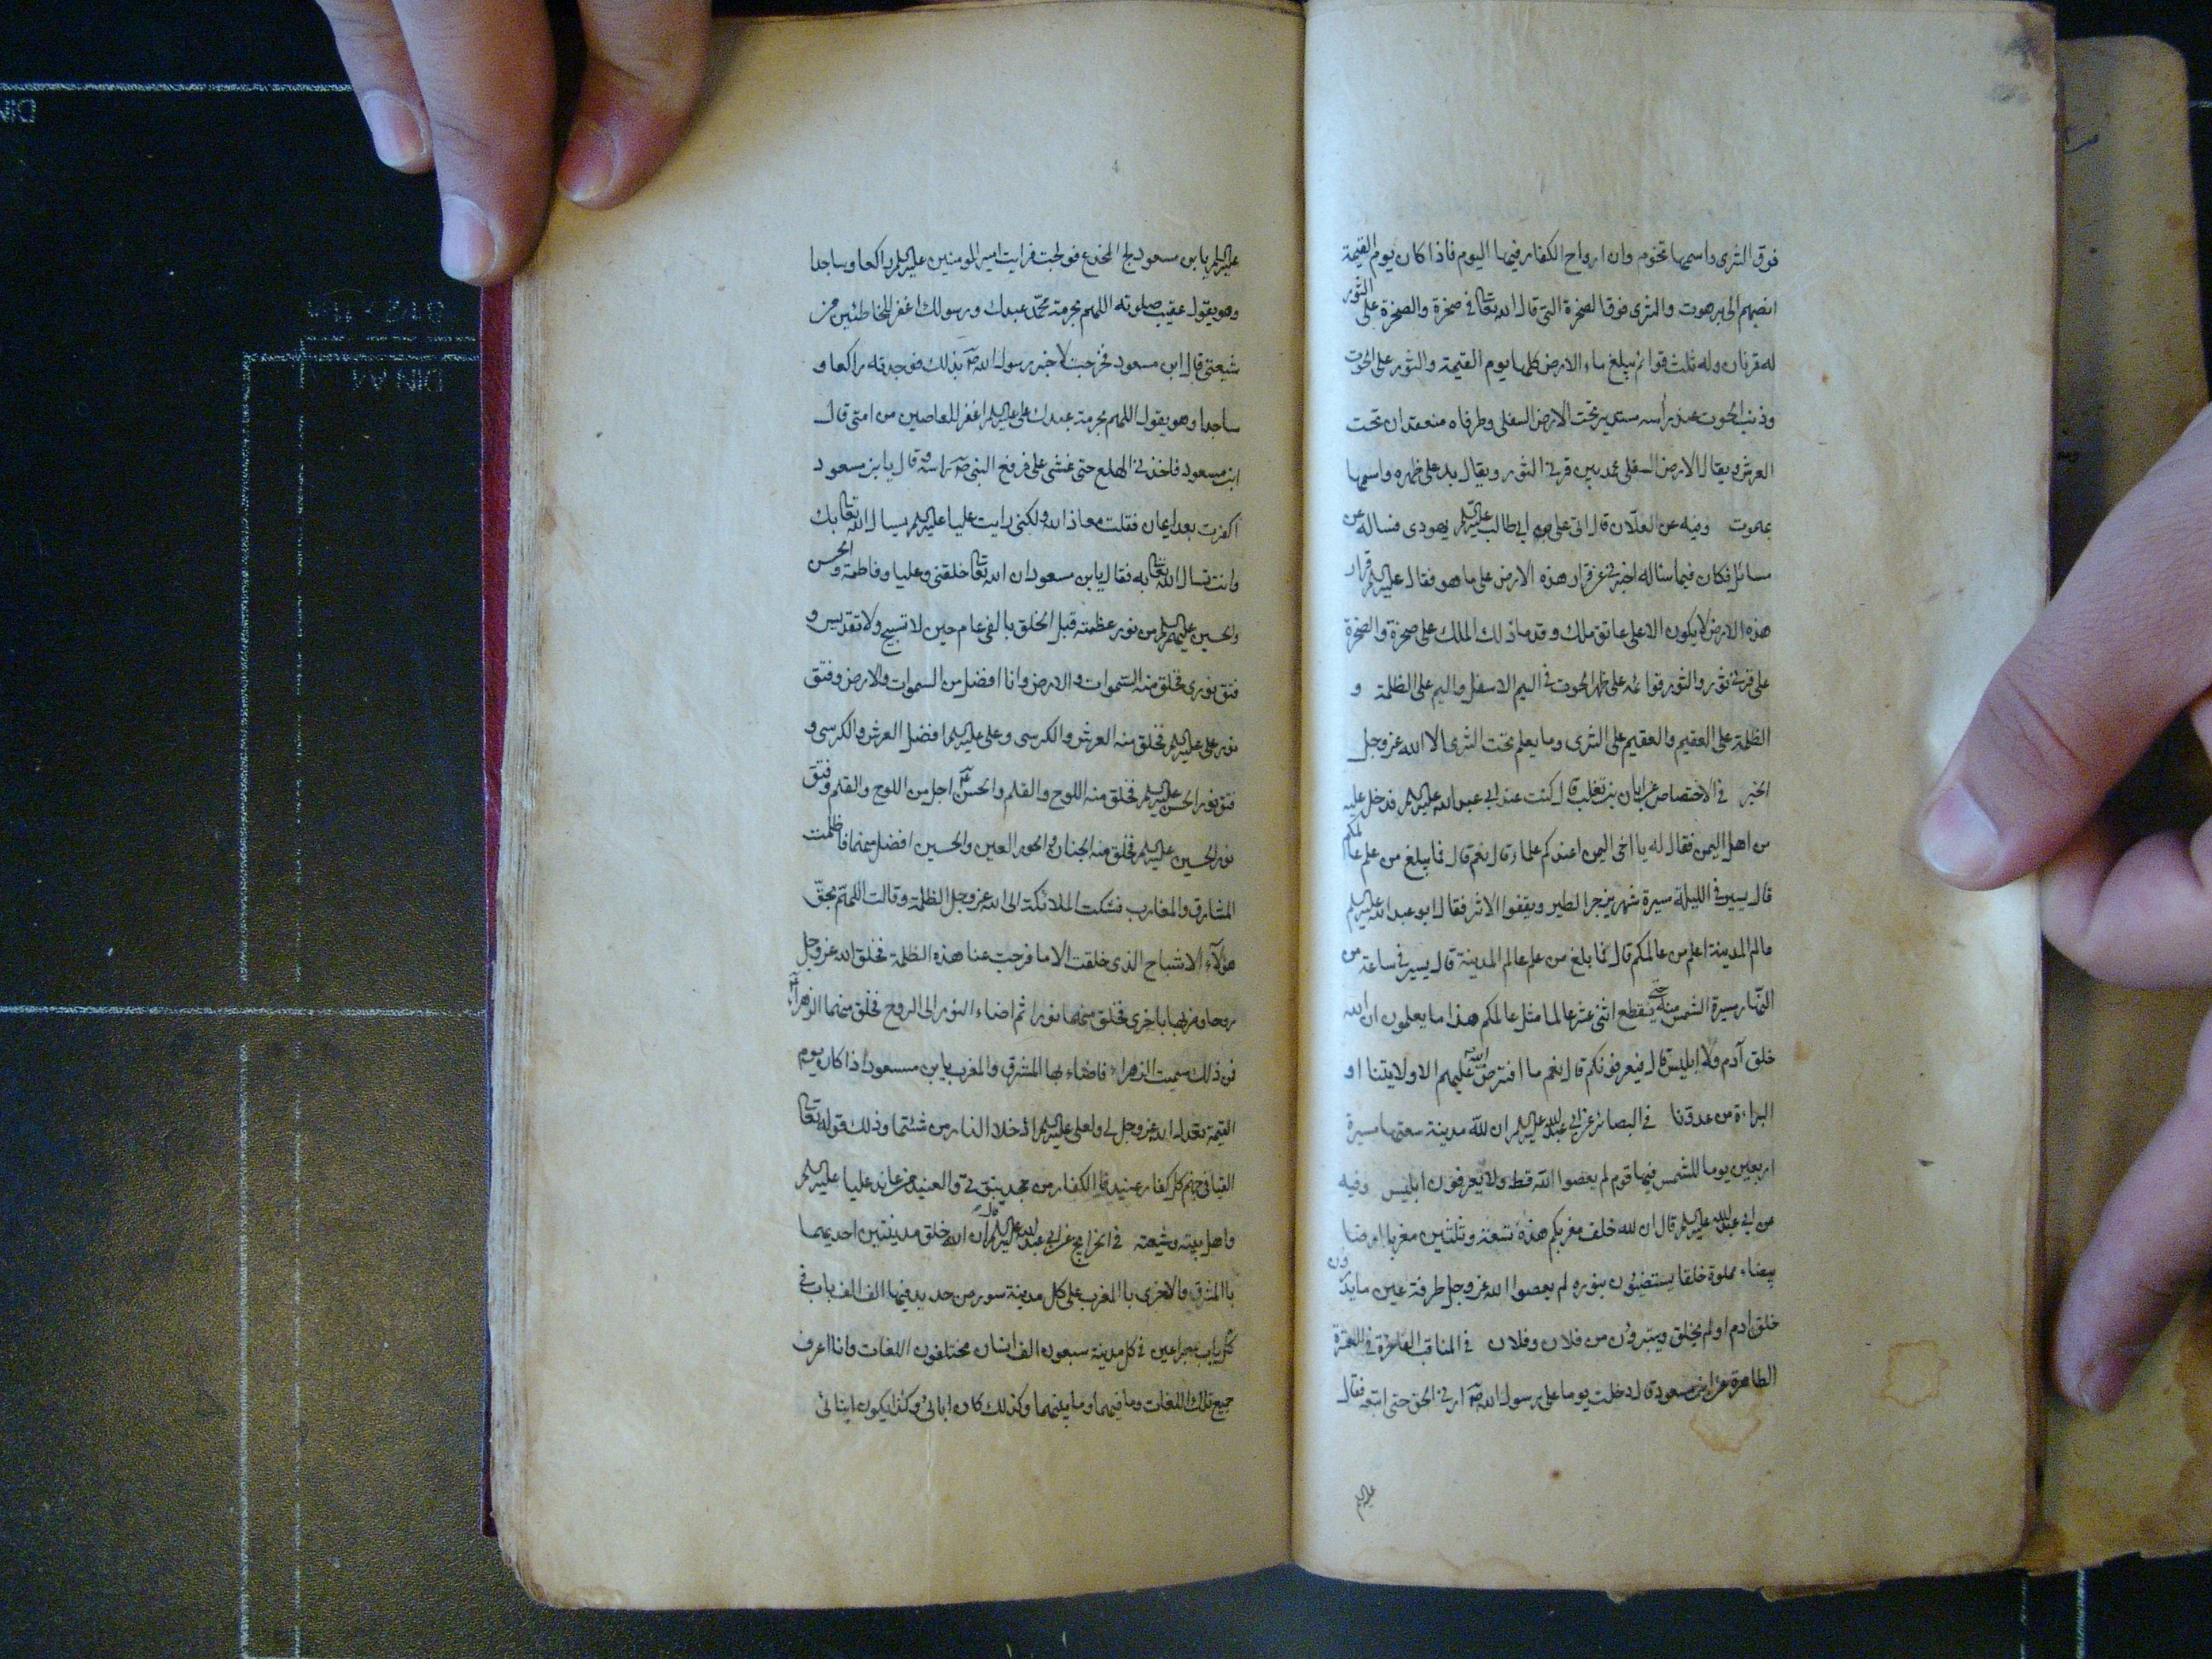 فوق الثرى واسمها تخوم وان ارواح الكفار فيها اليوم فاذا كان يوم القيمة
الى برهوت والثرى فوق الصخرة التى قال الله تعالى فى صخرة والصخرة على الثور
له قرنان وله ثلث قوائم يبلغ ماء الارض كلها يوم القيمة والثور على الحوت
وذنب الحوت عند رأسه مستدير تحت الارض السفلى وطرفاه منعقدان تحت
العرش ويقال الارض السفلى عمد بين قرنى الثور ويقال بل على ظهره واسمها
وفيه عن العلان قال اتى على بن ابى طالب عليه السلم يهودى فساله عن
مسائل فكان فيما ساله اخبرنى عن قرار هذه الارض على ما هو فقال عليه السلم قرار
هذه الارض لا يكون الا على عاتق ملك وقدما ذلك الملك على صخرة والصخرة
على قرنى ثور والثور قوائمه على ظهر الحوت فى اليم الاسفل واليم على الظلمة و
الظلمة على العقيم والعقيم على الثرى وما يعلم تحت الثرى الا الله عز وجل
الخبر فى الاختصاص عن ابان بن تغلب قال كنت عند ابى عبد الله عليه السلم فدخل عليه
من اهل اليمن فقال له يا اخى اليمن اعندكم علماء قال نعم قال فما يبلغ من علم عالمكم
قال يسير فى الليلة سيرة شهرين يزجر الطير ويقفوا الاثر فقال ابو عبد الله عليه السلم
عالم المدينة اعلم من عالمكم قال فما بلغ من علم عالم المدينة قال يسير فى ساعة من
النهار سيرة الشمس سنة حتى يقطع اثنى عشر عالما مثل عالمكم هذا ما يعلمون ان الله
خلق آدم ولا ابليس قال فيعرفونكم قال نعم ما افترض الله عليهم الا ولايتنا او
البراءة من عدونا فى البصائر عن ابى عبد الله عليه السلم ان لله مدينة سعتها مسيرة
اربعين يوما للشمس فيها قوم لم يعصوا الله قط ولا يعرفون ابليس وفيه
عن ابى عبد الله عليه السلم قال ان لله خلف مغربكم هذه تسعة وثلثين مغربا ارضا
بيضاء مملوة خلقا يستضيئون بنوره لم يعصوا الله عز وجل طرفة عين ما يدرون
خلق ادم او لم يخلق ويتبرؤن من فلان وفلان فى المناقب الفاخرة فى العترة
الطاهرة عن ابن مسعود قال دخلت يوما على رسول الله ص ارنى الحق حتى اتبعه فقال
عليه السلم
عليه السلم يا بن مسعود لج المخدع فولجت فرايت امير المومنين عليه السلم راكعا وساجدا
وهو يقول عقيب صلوته اللهم بحرمة محمد عبدك ورسولك اغفر للخاطئين من
شيعتى قال ابن مسعود فخرجت لاخبر رسول الله ص بذلك فوجدته راكعا و
ساجدا وهو يقول اللهم بحرمة عبدك على عليه السلم اغفر للعاصين من امتى قال
ابن مسعود فاخذنى الهلع حتى غشى على فرفع النبى ص راسه وقال يا بن مسعود
اكفرت بعد ايمان فقلت معاذ الله ولكنى رايت عليا عليه السلم يسال الله تعالى بك
وانت تسال الله تعالى به فقال يا بن مسعود ان الله تعالى خلقنى وعليا وفاطمة والحسن
والحسين عليهم السلم من نور عظمته قبل الخلق بالفى عام حين لا تسبيح ولا تقديس و
فتق نورى فخلق منه السموات والارض وانا افضل من السموات والارض وفتق
نور على عليه السلم فخلق منه العرش والكرسى وعلى عليه السلم افضل العرش والكرسى و
فتق نور الحسن عليه السلم فخلق منه اللوح والقلم والحسن ع اجل من اللوح والقلم وفتق
نور الحسين عليه السلم فخلق منه الجنان والحور العين والحسين افضل منهما فاظلمت
المشارق والمغارب فشكت الملائكة الى الله عز وجل الظلمة وقالت اللهم بحق
هؤلاء الاشباح الذى خلقت الا ما فرجت عنا هذه الظلمة فخلق الله عز وجل
روحا وقرنها باخرى فخلق منهما نورا ثم اضاء النور الى الروح فخلق منهما الزهراء
فمن ذلك سميت الزهراء فاضاء بها المشرق والمغرب يا بن مسعود اذا كان يوم
القيمة يقول الله عز وجل لى ولعلى عليه السلم ادخلا النار من شئتما وذلك قوله تعالى
القيا فى جهنم كل كفار عنيد فالكفار من جحد نبوتى والعنيد من عاند عليا عليه السلم
واهل بيته وشيعته فى الخرايج عن ابى عبد الله عليه السلم قال ان الله خلق مدينتين احديهما
با المشرق والاخرى با المغرب على كل مدينة سور من حديد فيها الف الف باب فى
كل باب مصراعين فى كل مدينة سبعون الف انسان مختلفون اللغات وانا اعرف
جميع تلك اللغات وما فيهما وما بينهما وكذلك كان ابائى وكذا يكون ابنائى